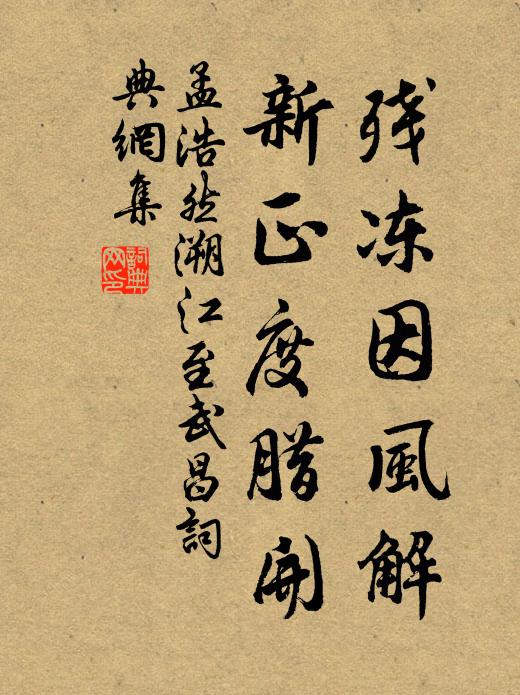 残冻因風解
新正度腊開
孟浩然溯江至武昌詞
典網集
詞典
网印